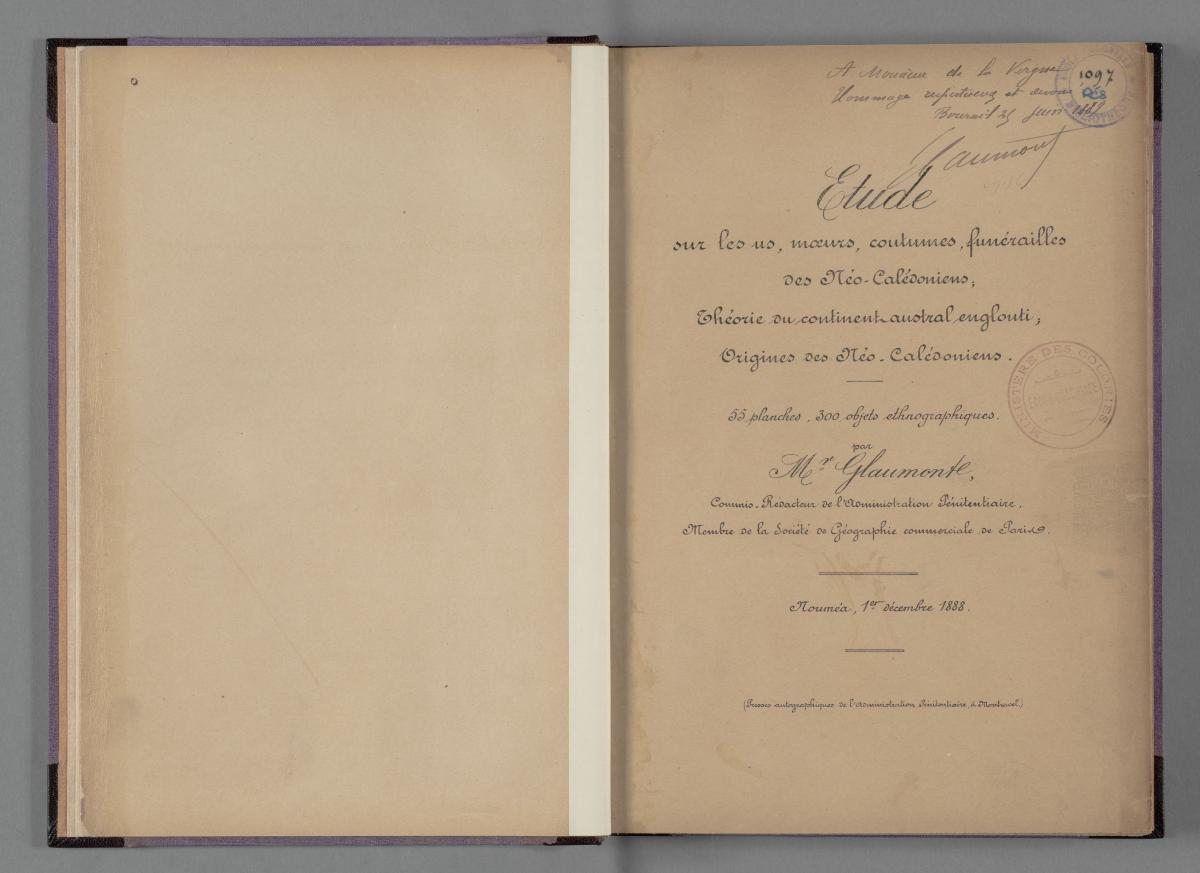 A Monsieur de la Vergne
Hommage respectueux et dévoué
Bourail 25 Juin
Glaumont
1097
Etude
sur les us, mœurs, coutumes, funérailles
des Néo-Calédoniens;
Théorie du continent austral englouti;
Origines des Néo-Calédoniens.
55 planches, 300 objets ethnographiques.
par
Mr Glaumont,
Commis-Rédacteur de l'Administration Pénitentiaire,
Membre de la Société de Géographie commerciale de Paris.
Nouméa, 1er décembre 1888.
(Presses autographiques de l'Administration Pénitentiaire, à Montravel.)
MINISTÈRE DES COLONIES